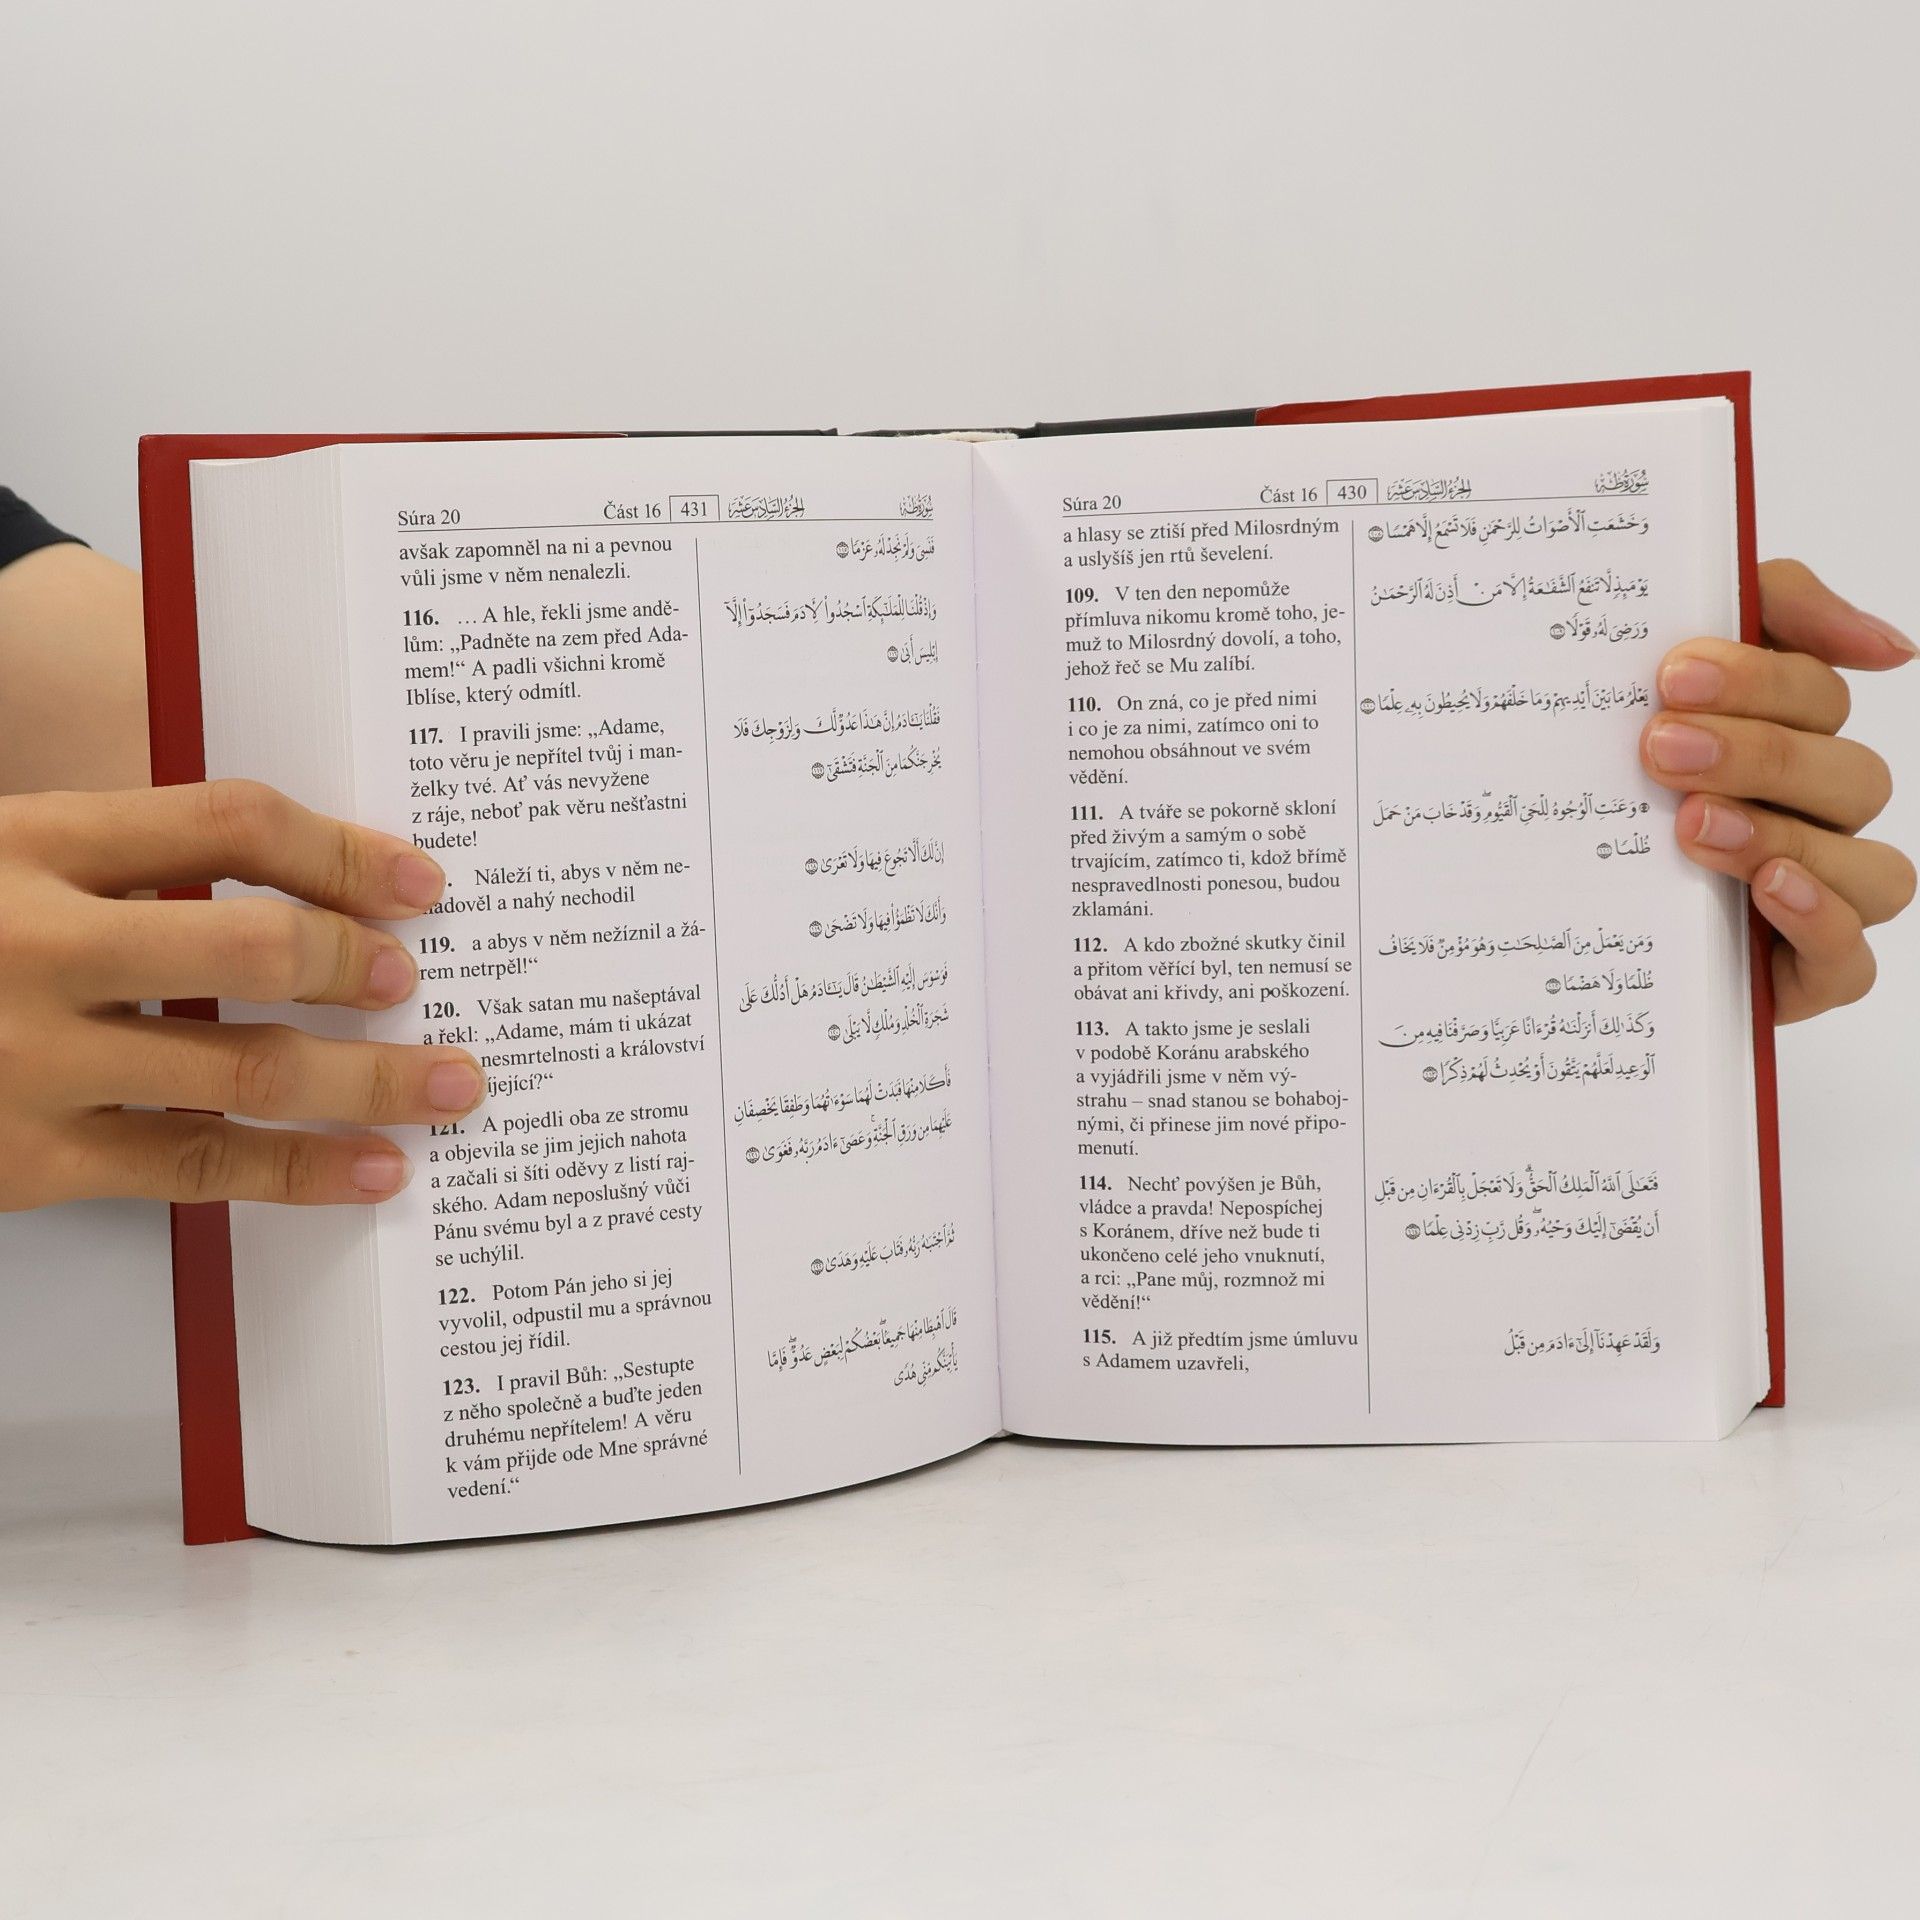 Súra 20 Část 16 430 الجزء السادس عشر سورة طه
a hlasy se ztiší před Milosrdným
a uslyšíš jen rtů ševelení.
109. V ten den nepomůže
přímluva nikomu kromě toho, je-
muž to Milosrdný dovolí, a toho,
jehož řeč se Mu zalíbí.
110. On zná, co je před nimi
i co je za nimi, zatímco oni to
nemohou obsáhnout ve svém
vědění.
111. A tváře se pokorně skloní
před živým a samým o sobě
trvajícím, zatímco ti, kdož břímě
nespravedlnosti ponesou, budou
zklamáni.
112. A kdo zbožné skutky činil
a přitom věřící byl, ten nemusí se
obávat ani křivdy, ani poškození.
113. A takto jsme je seslali
v podobě Koránu arabského
a vyjádřili jsme v něm vý-
strahu – snad stanou se bohaboj-
nými, či přinese jim nové připo-
menutí.
114. Nechť povýšen je Bůh,
vládce a pravda! Nepospíchej
s Koránem, dříve než bude ti
ukončeno celé jeho vnuknutí,
a rci: „Pane můj, rozmnož mi
vědění!“
115. A již předtím jsme úmluvu
s Adamem uzavřeli,
وَخَشَعَتِ ٱلْأَصْوَاتُ لِلرَّحْمَٰنِ فَلَا تَسْمَعُ إِلَّا هَمْسًا ١٠٨
يَوْمَئِذٍ لَّا تَنفَعُ ٱلشَّفَٰعَةُ إِلَّا مَنْ أَذِنَ لَهُ ٱلرَّحْمَٰنُ
وَرَضِىَ لَهُۥ قَوْلًا ١٠٩
يَعْلَمُ مَا بَيْنَ أَيْدِيهِمْ وَمَا خَلْفَهُمْ وَلَا يُحِيطُونَ بِهِۦ عِلْمًا ١١٠
۞ وَعَنَتِ ٱلْوُجُوهُ لِلْحَىِّ ٱلْقَيُّومِ ۖ وَقَدْ خَابَ مَنْ حَمَلَ
ظُلْمًا ١١١
وَمَن يَعْمَلْ مِنَ ٱلصَّٰلِحَٰتِ وَهُوَ مُؤْمِنٌ فَلَا يَخَافُ
ظُلْمًا وَلَا هَضْمًا ١١٢
وَكَذَٰلِكَ أَنزَلْنَٰهُ قُرْءَانًا عَرَبِيًّا وَصَرَّفْنَا فِيهِ مِنَ
ٱلْوَعِيدِ لَعَلَّهُمْ يَتَّقُونَ أَوْ يُحْدِثُ لَهُمْ ذِكْرًا ١١٣
فَتَعَٰلَى ٱللَّهُ ٱلْمَلِكُ ٱلْحَقُّ ۗ وَلَا تَعْجَلْ بِٱلْقُرْءَانِ مِن قَبْلِ
أَن يُقْضَىٰٓ إِلَيْكَ وَحْيُهُۥ ۖ وَقُل رَّبِّ زِدْنِى عِلْمًا ١١٤
وَلَقَدْ عَهِدْنَآ إِلَىٰٓ ءَادَمَ مِن قَبْلُ
Súra 20 Část 16 431 الجزء السادس عشر سورة طه
avšak zapomněl na ni a pevnou
vůli jsme v něm nenalezli.
116. … A hle, řekli jsme andě-
lům: „Padněte na zem před Ada-
mem!“ A padli všichni kromě
Iblíse, který odmítl.
117. I pravili jsme: „Adame,
toto věru je nepřítel tvůj i man-
želky tvé. Ať vás nevyžene
z ráje, neboť pak věru nešťastni
budete!
. Náleží ti, abys v něm ne-
adověl a nahý nechodil
119. a abys v něm nežíznil a žá-
rem netrpěl!“
120. Však satan mu našeptával
a řekl: „Adame, mám ti ukázat
nesmrtelnosti a království
íjející?“
121. A pojedli oba ze stromu
a objevila se jim jejich nahota
a začali si šíti oděvy z listí raj-
ského. Adam neposlušný vůči
Pánu svému byl a z pravé cesty
se uchýlil.
122. Potom Pán jeho si jej
vyvolil, odpustil mu a správnou
cestou jej řídil.
123. I pravil Bůh: „Sestupte
z něho společně a buďte jeden
druhému nepřítelem! A věru
k vám přijde ode Mne správné
vedení.“
فَنَسِىَ وَلَمْ نَجِدْ لَهُۥ عَزْمًا ١١٥
وَإِذْ قُلْنَا لِلْمَلَٰٓئِكَةِ ٱسْجُدُوا۟ لِءَادَمَ فَسَجَدُوٓا۟ إِلَّآ
إِبْلِيسَ أَبَىٰ ١١٦
فَقُلْنَا يَٰٓـَٔادَمُ إِنَّ هَٰذَا عَدُوٌّ لَّكَ وَلِزَوْجِكَ فَلَا
يُخْرِجَنَّكُمَا مِنَ ٱلْجَنَّةِ فَتَشْقَىٰٓ ١١٧
إِنَّ لَكَ أَلَّا تَجُوعَ فِيهَا وَلَا تَعْرَىٰ ١١٨
وَأَنَّكَ لَا تَظْمَؤُا۟ فِيهَا وَلَا تَضْحَىٰ ١١٩
فَوَسْوَسَ إِلَيْهِ ٱلشَّيْطَٰنُ قَالَ يَٰٓـَٔادَمُ هَلْ أَدُلُّكَ عَلَىٰ
شَجَرَةِ ٱلْخُلْدِ وَمُلْكٍ لَّا يَبْلَىٰ ١٢٠
فَأَكَلَا مِنْهَا فَبَدَتْ لَهُمَا سَوْءَٰتُهُمَا وَطَفِقَا يَخْصِفَانِ
عَلَيْهِمَا مِن وَرَقِ ٱلْجَنَّةِ ۚ وَعَصَىٰٓ ءَادَمُ رَبَّهُۥ فَغَوَىٰ ١٢١
ثُمَّ ٱجْتَبَٰهُ رَبُّهُۥ فَتَابَ عَلَيْهِ وَهَدَىٰ ١٢٢
قَالَ ٱهْبِطَا مِنْهَا جَمِيعًۢا ۖ بَعْضُكُمْ لِبَعْضٍ عَدُوٌّ ۖ فَإِمَّا
يَأْتِيَنَّكُم مِّنِّى هُدًى